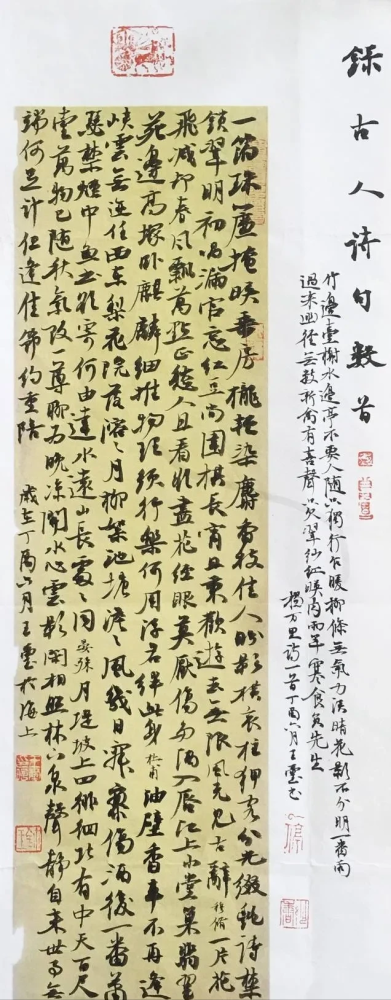 錄古人詩句數首
竹邊臺榭水邊亭不要人隨只獨行乍暖柳條無氣力淡晴花影不分明一番雨
過來幽徑無數新禽有喜聲只欠翠紗紅映肉兩年寒食負先生
楊万里詩一首丁酉六月王靈書
一箔珠簾掩映垂房櫳輕染麝香枝佳人盼影橫哀柱狎客分光綴艷詩禁
鎖翠明初唱漏官窗紅豆尚圍棋長宵且秉歡遊去無限風光見古辭 穆脩 一片花
飛減却春風飄萬點正愁人且看欲盡花經眼莫厭傷多酒入唇江上小堂巢翡翠
苑邊高塚臥麒麟細推物理須行樂何用浮名絆此身 杜甫 油壁香車不再逢
峽雲無迹任西東梨花院落溶々月柳絮池塘淡々風幾日寂寥傷酒後一番蕭
瑟禁煙中魚書欲寄何由達水遠山長處々同 晏殊 月堤坡上四徘徊北有中天百尺
臺萬物已隨秋氣改一尊聊爲晚凉開水心雲影閑相照林下泉聲靜自来世事無
端何足計但逢佳節約重陪
歲在丁酉六月王靈於海上